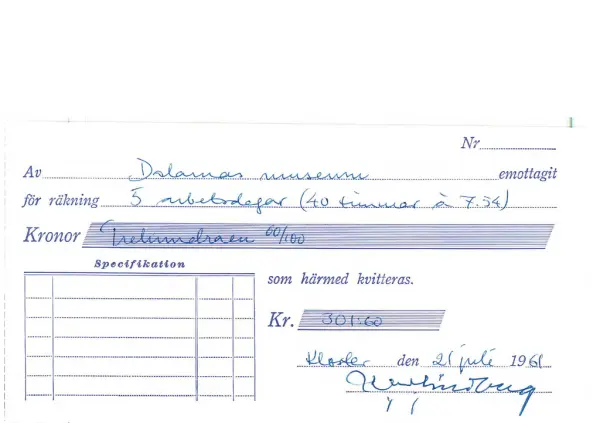 Nr
Av Dalarnas museum emottagit
för räkning 5 arbetsdagar (40 timmar à 7.54)
Kronor Trehundraen 60/100
Specifikation
som härmed kvitteras.
Kr. 301:60
Kloster den 21 juli 1961